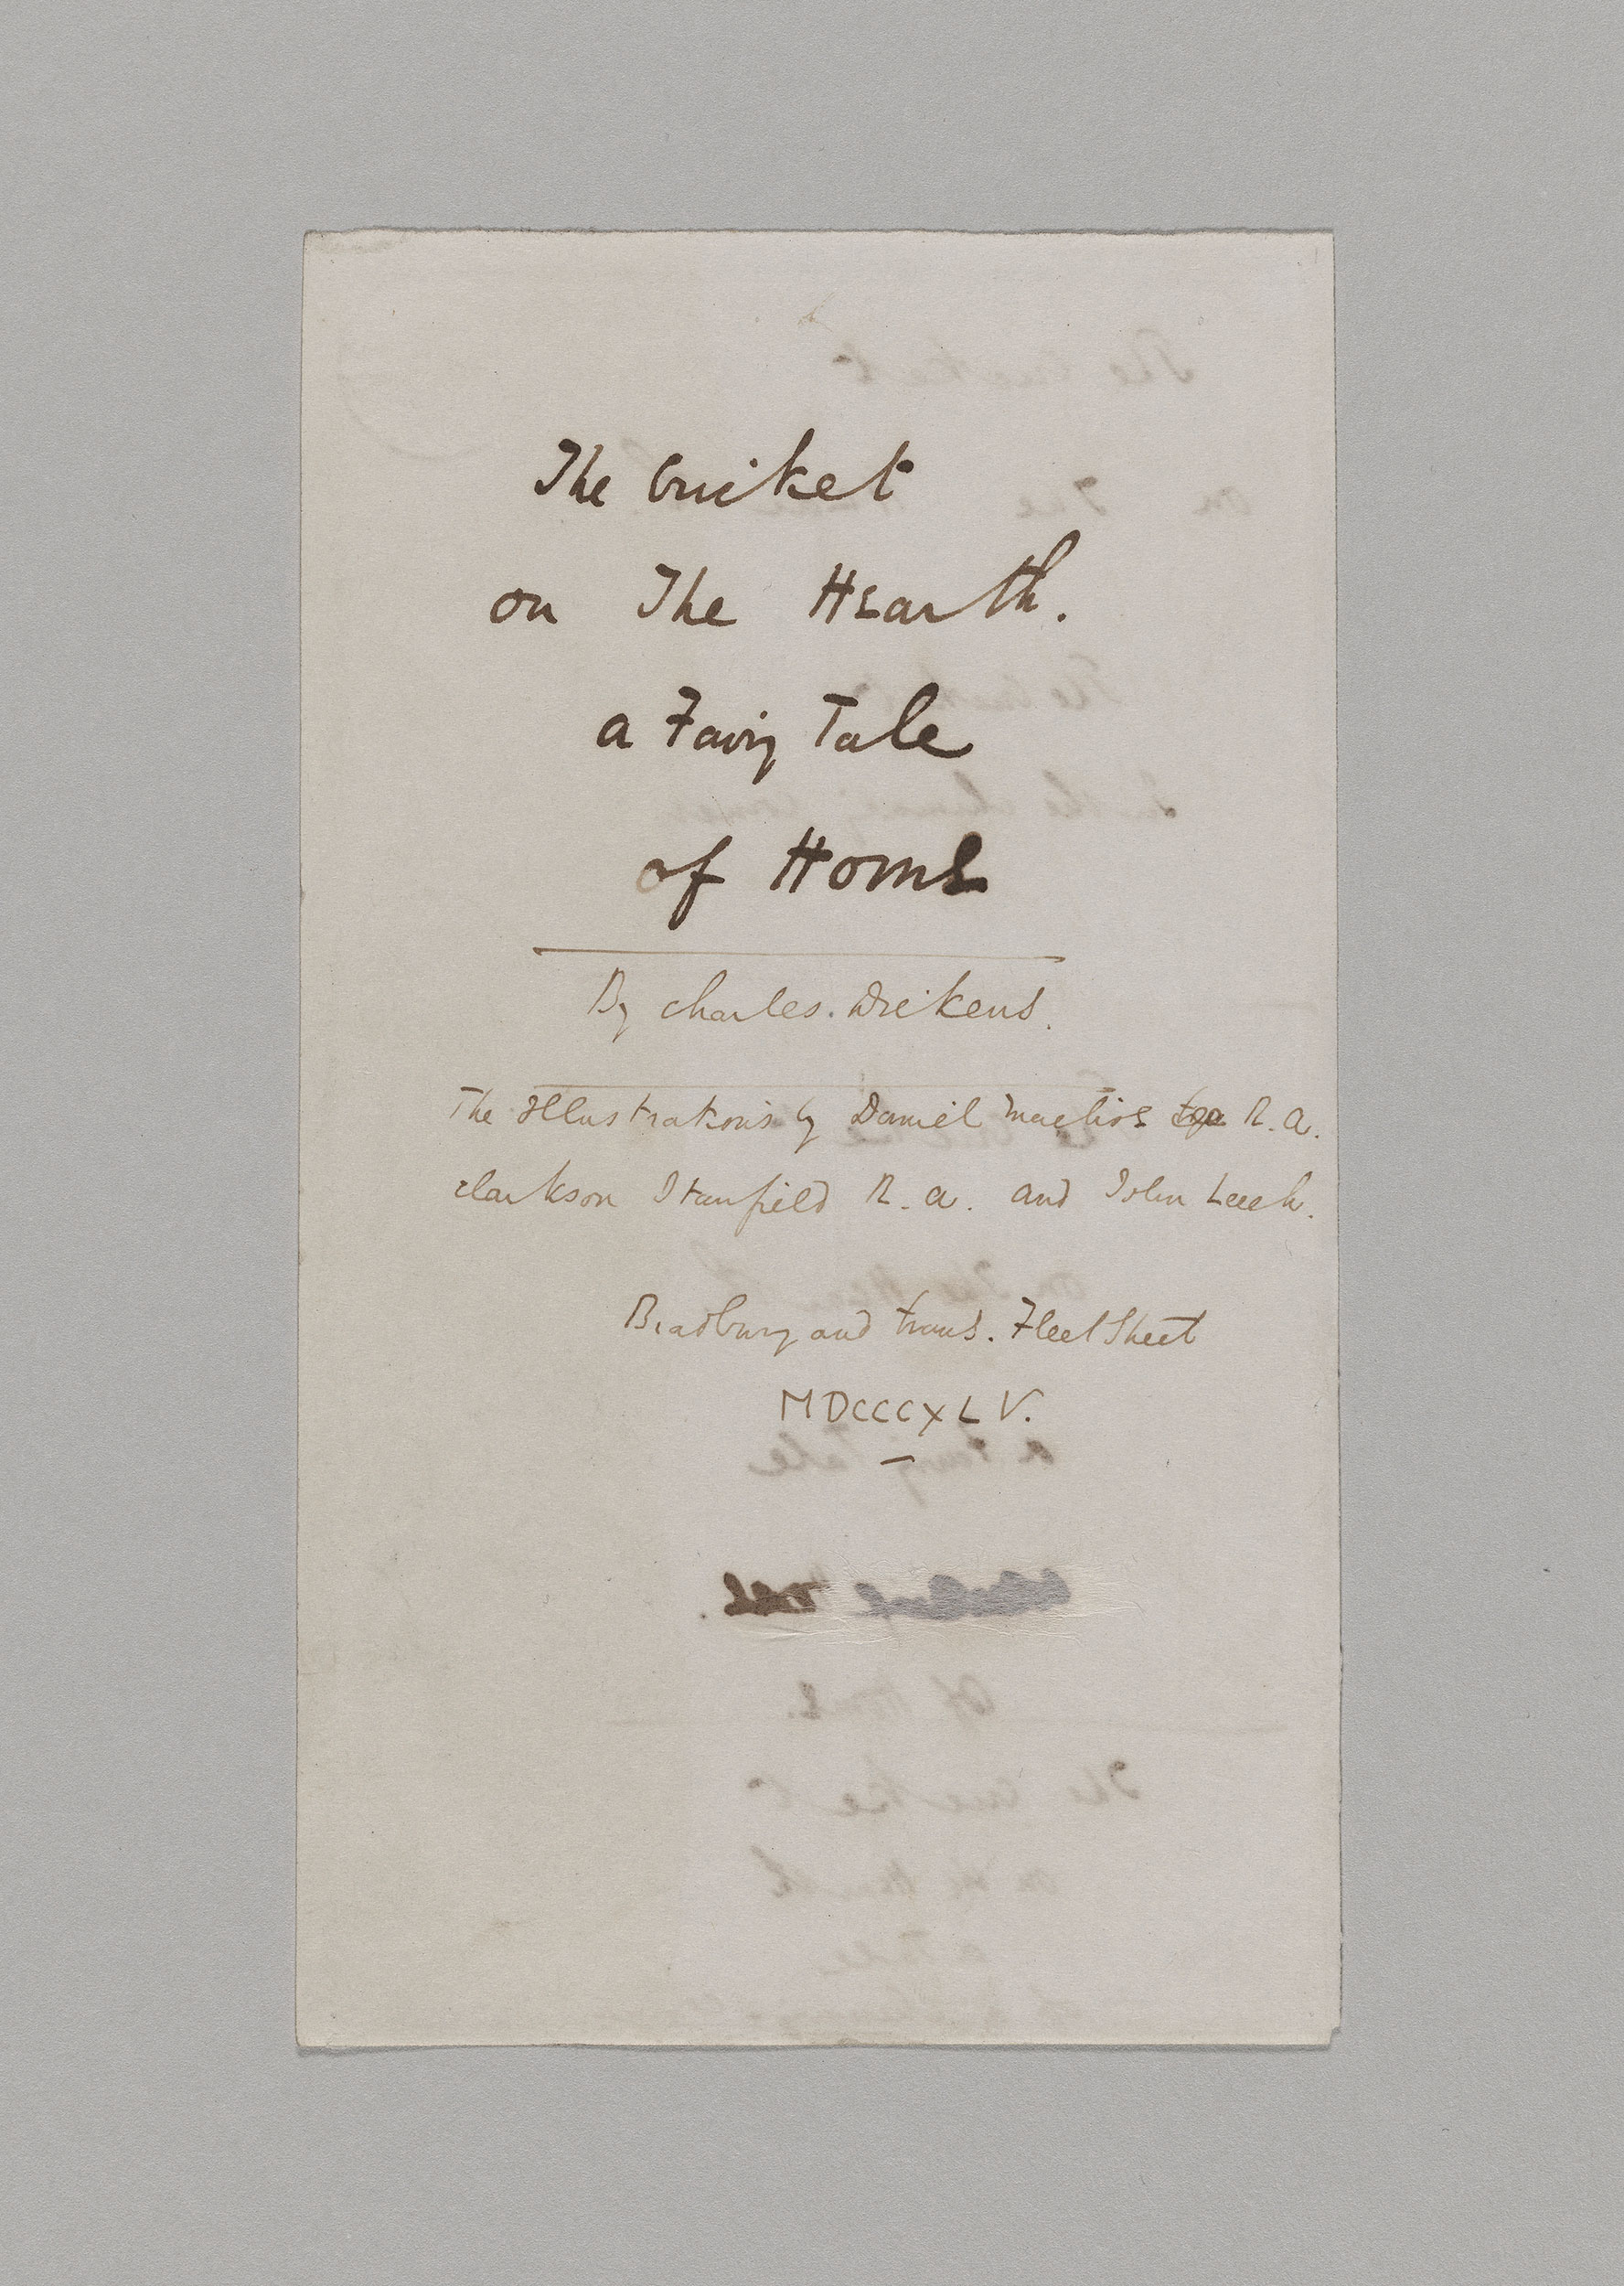 The Cricket
on The Hearth.
a Fairy Tale
of Home
By Charles. Dickens.
The Illustrations by Daniel Maclise R.A.
Clarkson Stanfield R.A. and John Leech.
Bradbury and Evans. Fleet Street
MDCCCXLV.